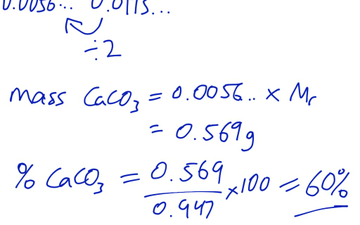 0.0056... 0.0115...
÷2
mass CaCO₃ = 0.0056.. × Mr
= 0.569g
% CaCO₃ = 0.569/0.947 ×100 = 60%